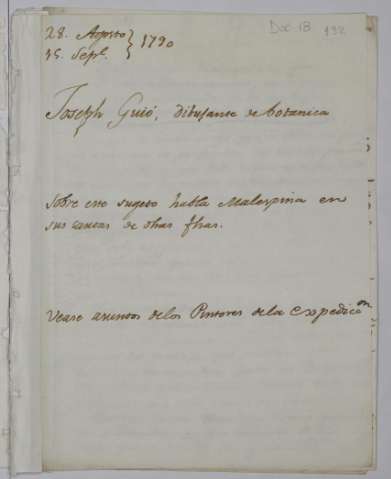 Doc 18 192
28. Agosto } 1790
15. Sepre.
Joseph Guió, dibujante de botanica
Sobre este sugeto habla Malaspina en
sus cartas de otras fhas.
Vease asuntos delos Pintores dela Expedicon